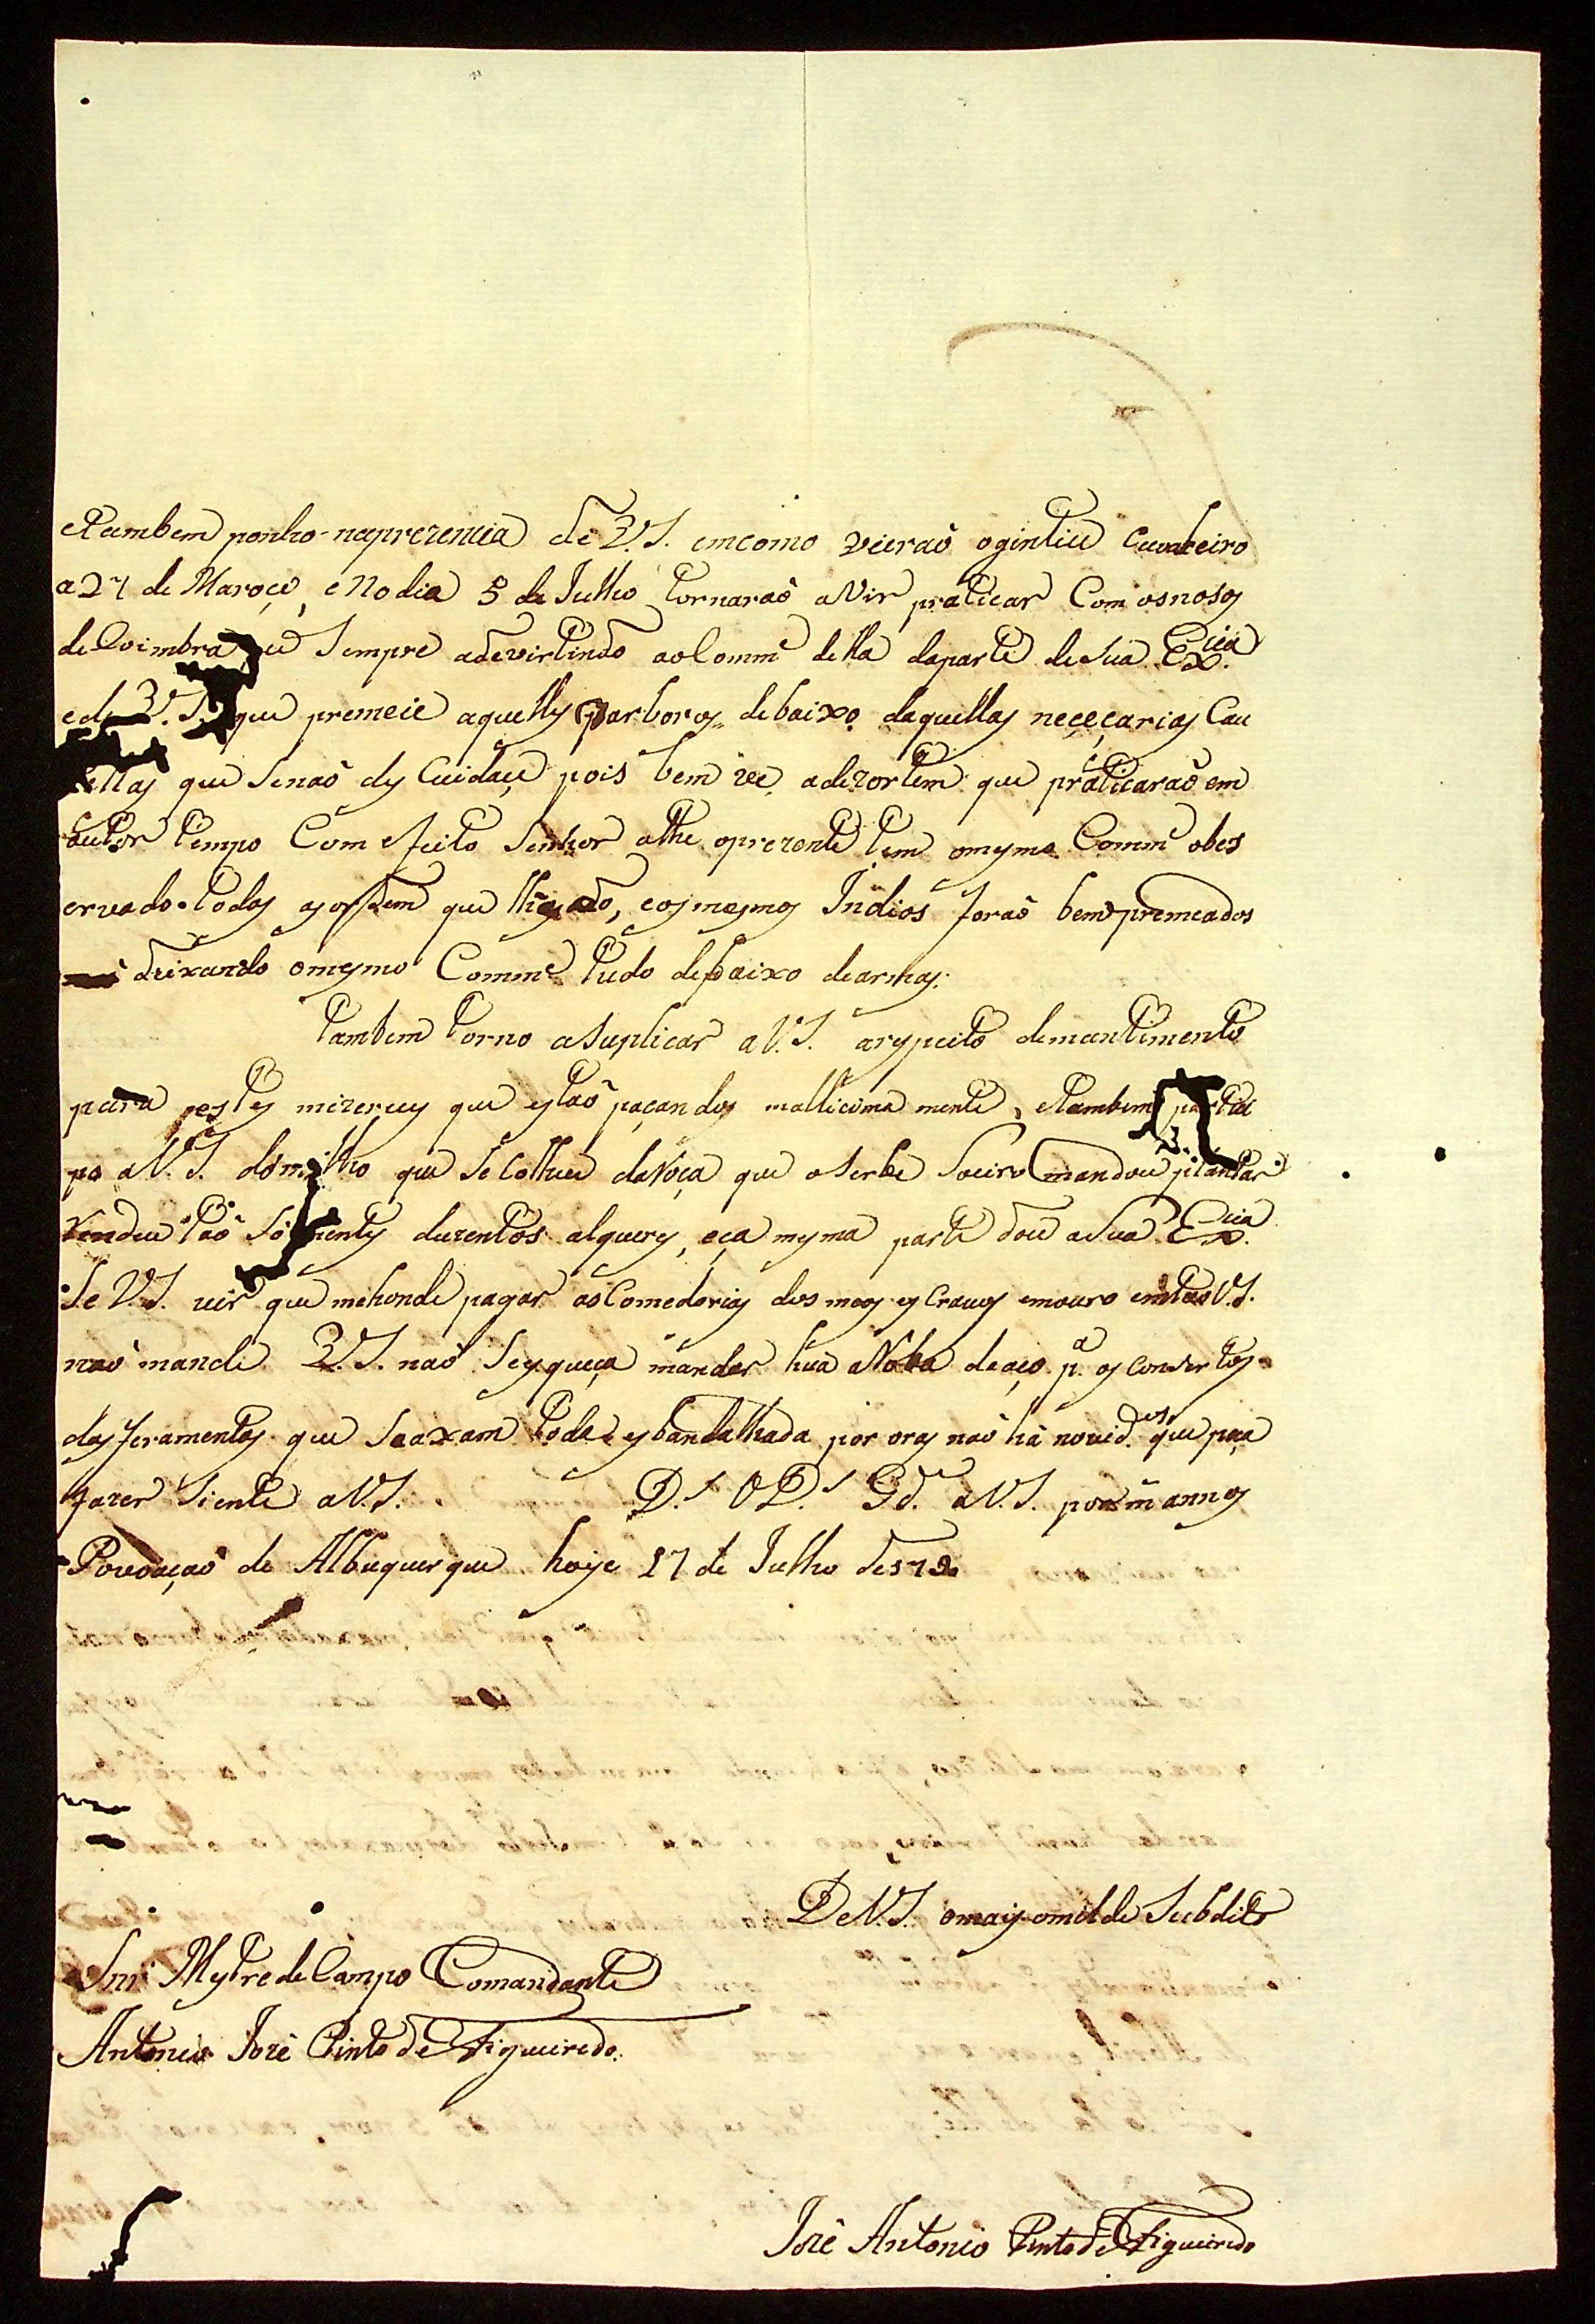 etambem ponho naprezencia de V.S. emcomo vierao ogintiu Cavaleiro
a 27 de Março, e No dia 5 de Julho tornarao aVir praticar Com osnosos
de Coimbra, eu Sempre adevirtindo aoCommᵉ della daparte de Sua Exᶜⁱᵃ
e de V.S. que premeie aquelles barboros debaixo daquellas neçeçarias Cau
tellas que Senaõ des Cuidaçe, pois bem vê adezortem que praticaraõ em
outor tempo Com efeito Senhor athe oprezente tem omesmo Commᵉ obes
ervado todas as ordem que lhe, eosmesmos Indios foraõ bem premeados
deixando omesmo Commᵉ tudo debaixo dearmas.
tambem torno aSuplicar aV.S. arespeito demantimento
para estes mizeraveis que estaõ paçandos mallicima mente, etambem partici
po aV.S. domilho que Se Colheu daRoça que oserbe mandou plantar
rendeu taõ Sómentes duzentos alqueres, eça mesma parte dou aSua Exᶜⁱᵃ
Se V.S. vir que mehonde pagar as Comedorias dos meos escravos emouro entaõ V.S.
naõ mande V.S. naõ Sesqueça mandar huã aRoba deaço pᵃ os Consertos
das feramentas que Seaxam todas esbandalhada por oras naõ hâ novidᵉˢ que paça
fazer Siente aV.S. D.ˢ G.ᵈᵉ aV.S. por mᵗ annos
Povoaçaõ de Albuquerque hoije 17 de Julho de
DeV.S. omais omilde Subdito
Snr. Mestre de Campo Comandante
Antonio Jozê Pinto de Figueiredo.
Jozê Antonio Pinto de Figueiredo